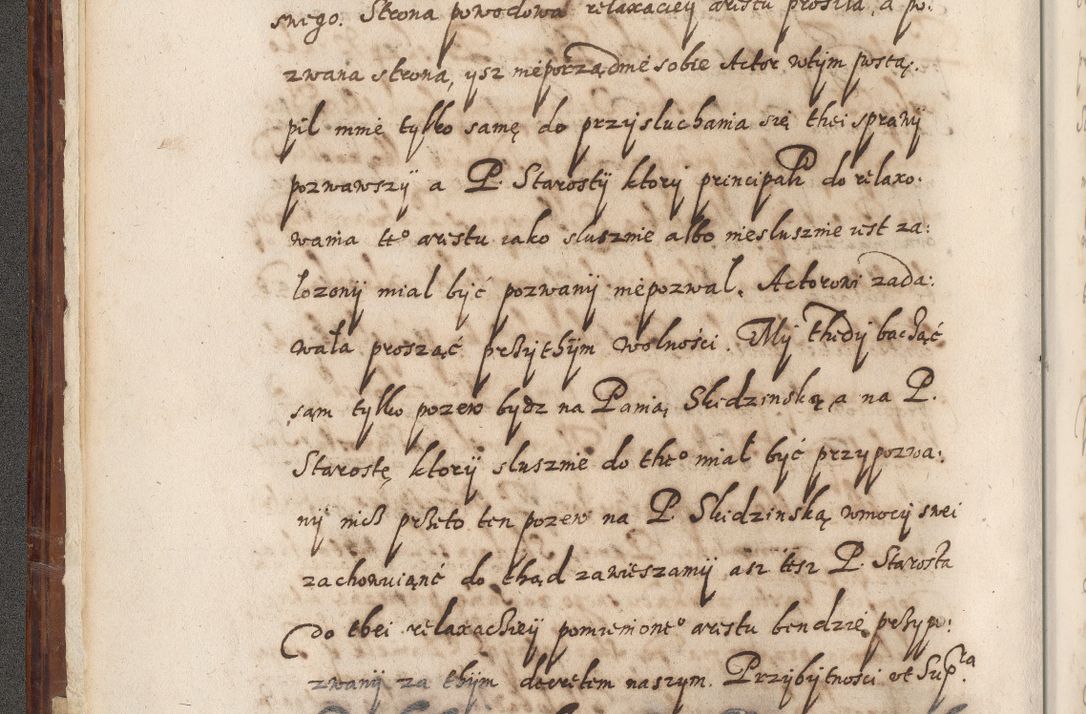 snego. Strona powodowa relaxacieÿ arestu prosiła, a po:
zwana strona, ysz nieporządnie sobie Actor wtÿm postą:
pil mnie tylko samę do przysluchania się thei sprawÿ
pozwawszÿ a P. Starostÿ ktory principalr do relaxo:
wania te⁰ arestu iako slusznie albo nieslusznie iest za:
lozonÿ mial być pozwanÿ niepozwal, Actorowi zada:
wała prosząć przÿthÿm wolności. Mÿ Thedy bacząć
sam tylko pozew bydz na Panią Skidzinską a na P.
Starostę ktorÿ slusznie do the⁰ miał być przypozwa:
nÿ nicz przeto ten pozew na P. Skidzinską wmocÿ swei
zachowuiąnć do thąd zawieszamÿ asz tesz P. Starosta
do thei relaxachieÿ pomienione⁰ arestu bendzie przypo:
zwanÿ za thÿm decretem naszym. Przÿbÿtności vt Supra.